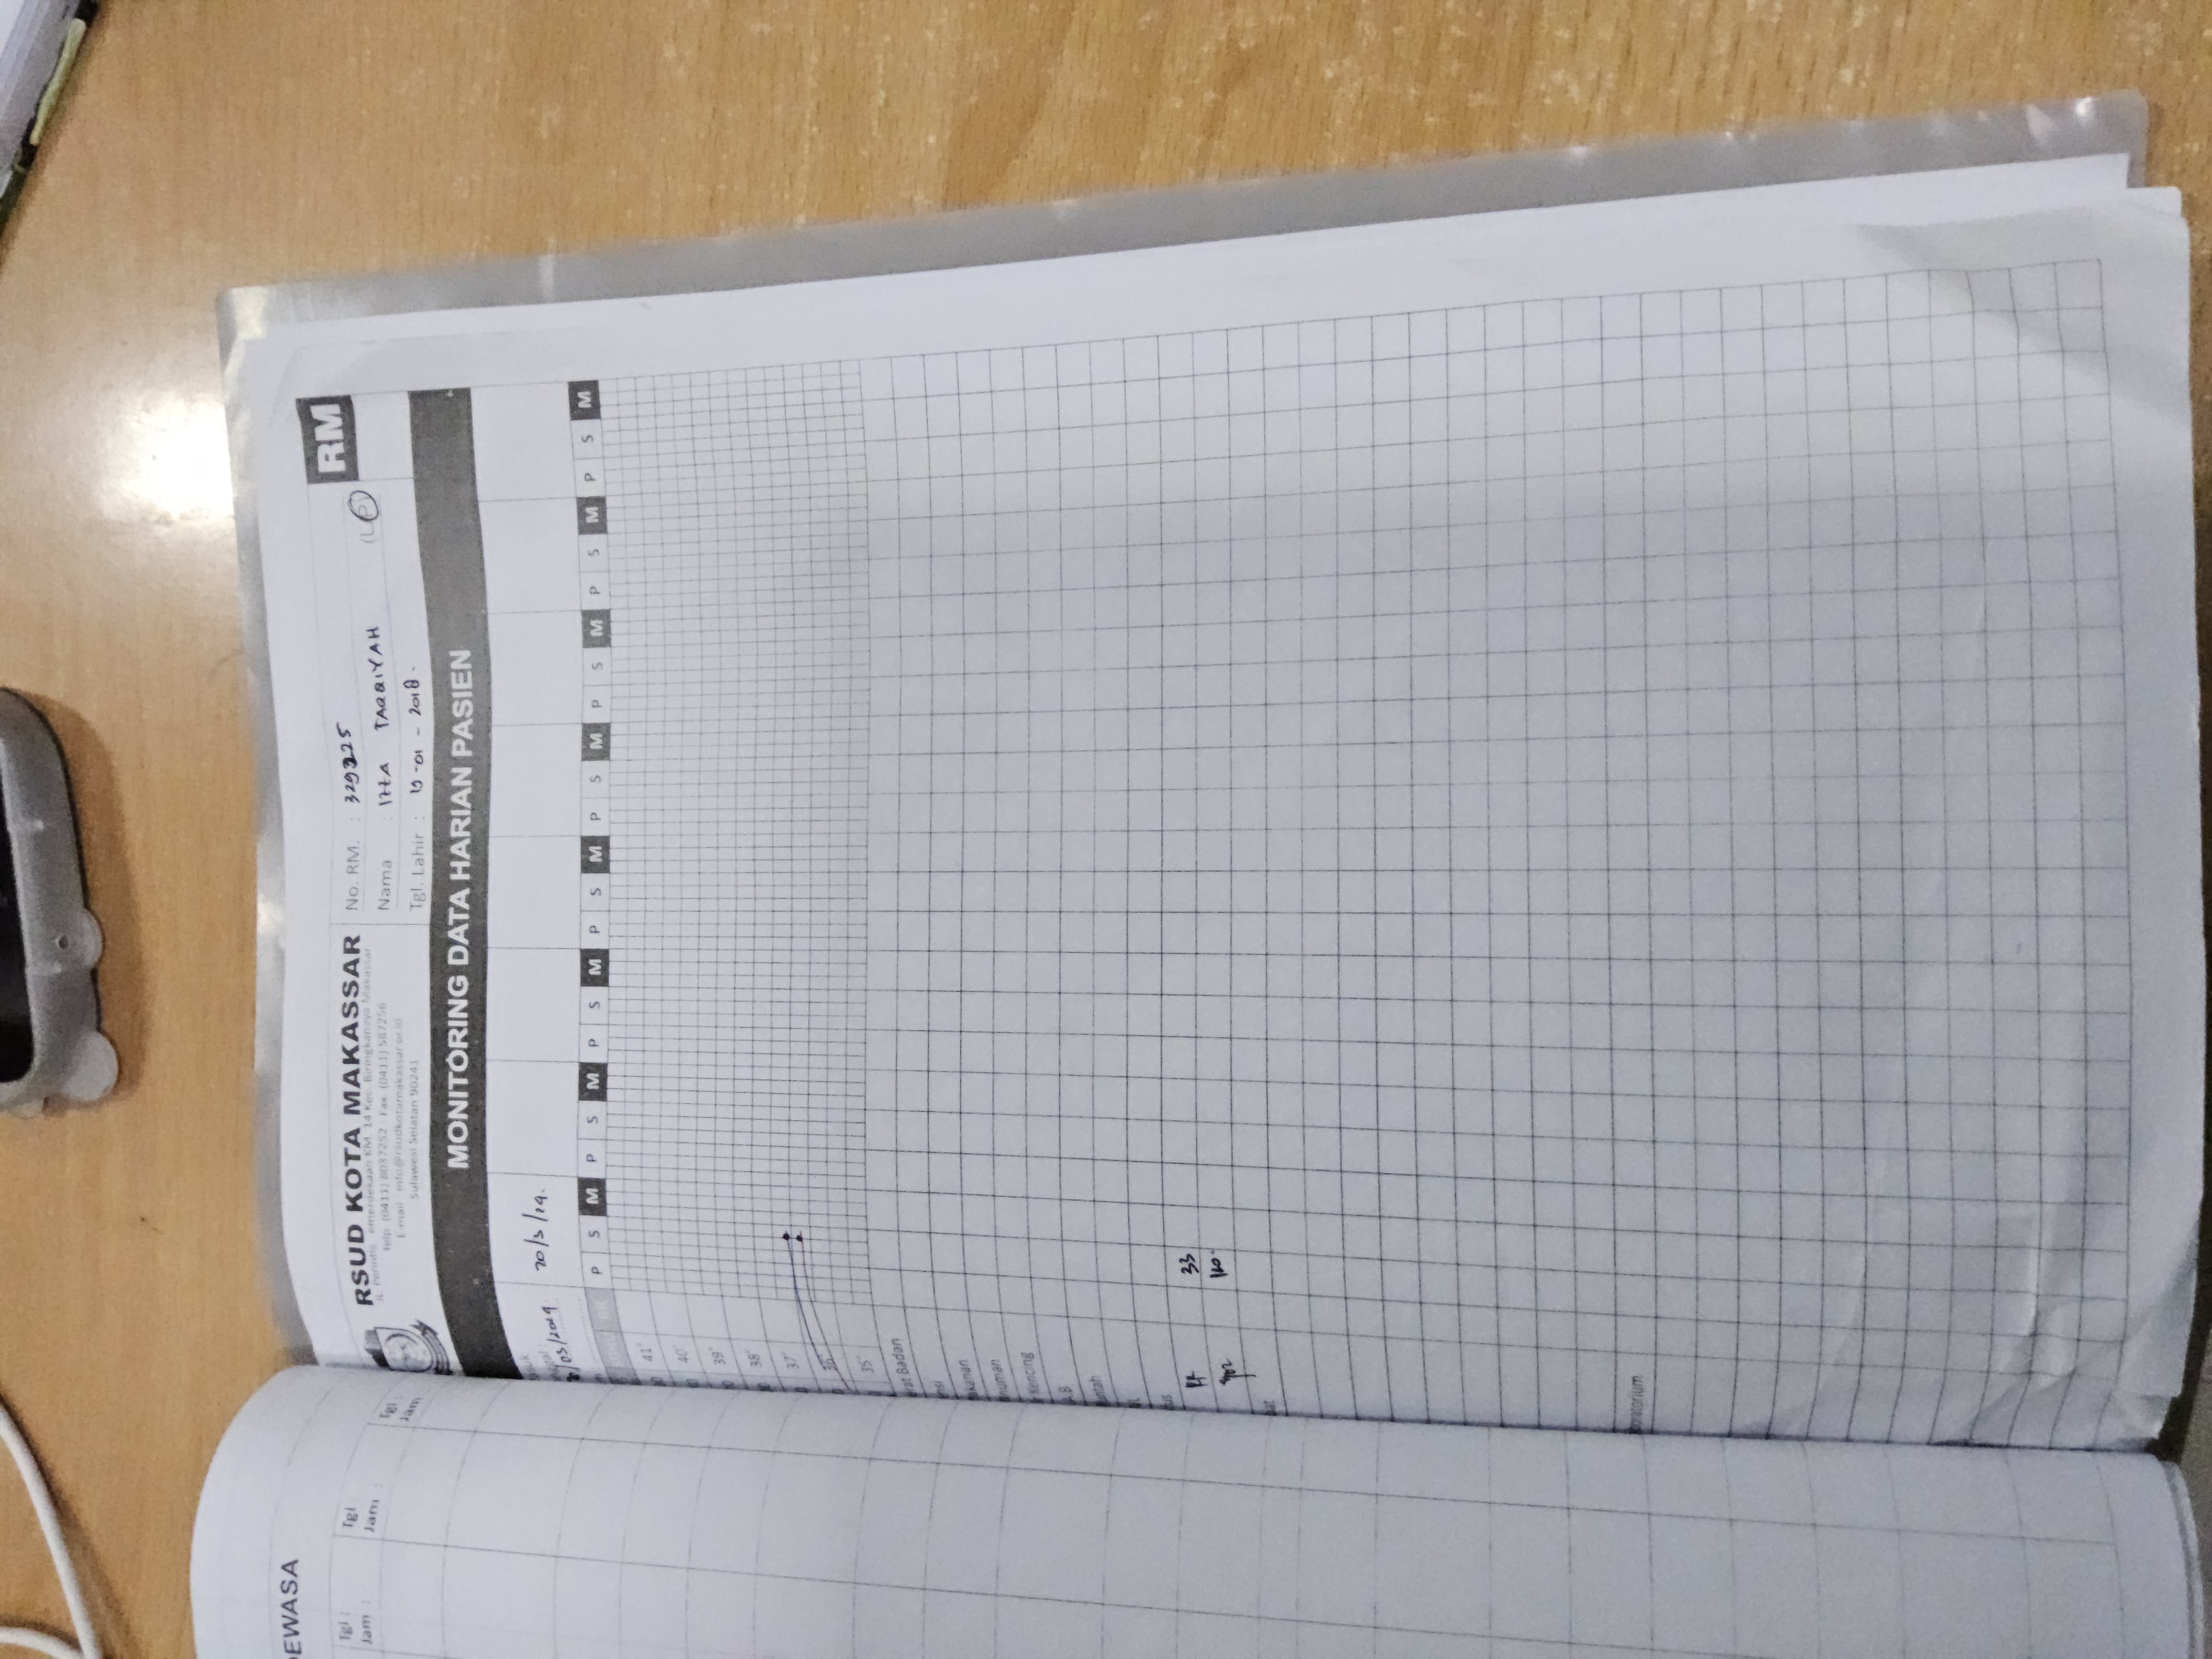 EWASA
Tgl :
Jam :
Tgl
Jam :
Tgl :
Jam
RSUD KOTA MAKASSAR
JL. Perintis emerdekaan KM. 14 Kec. Biringkanaya Makassar
Telp. (0411) 8037252 - Fax. (0411) 587256
E-mail : info@rsudkotamakassar.or.id
Sulawesi Selatan 90241
No. RM. : 329225
Nama : IZZA TAQQIYAH (L/P)
Tgl. Lahir : -01 - 2018.
RM
MONITORING DATA HARIAN PASIEN
/03/2019
20/3/19.
P S M P S M P S M P S M P S M P S M P S M P S M
41°
40°
39°
38°
37°
36°
35°
rat Badan
nsi
akanan
numan
r Kencing
A.B
untah
tus
RR 33
SpO2
bat
boratorium